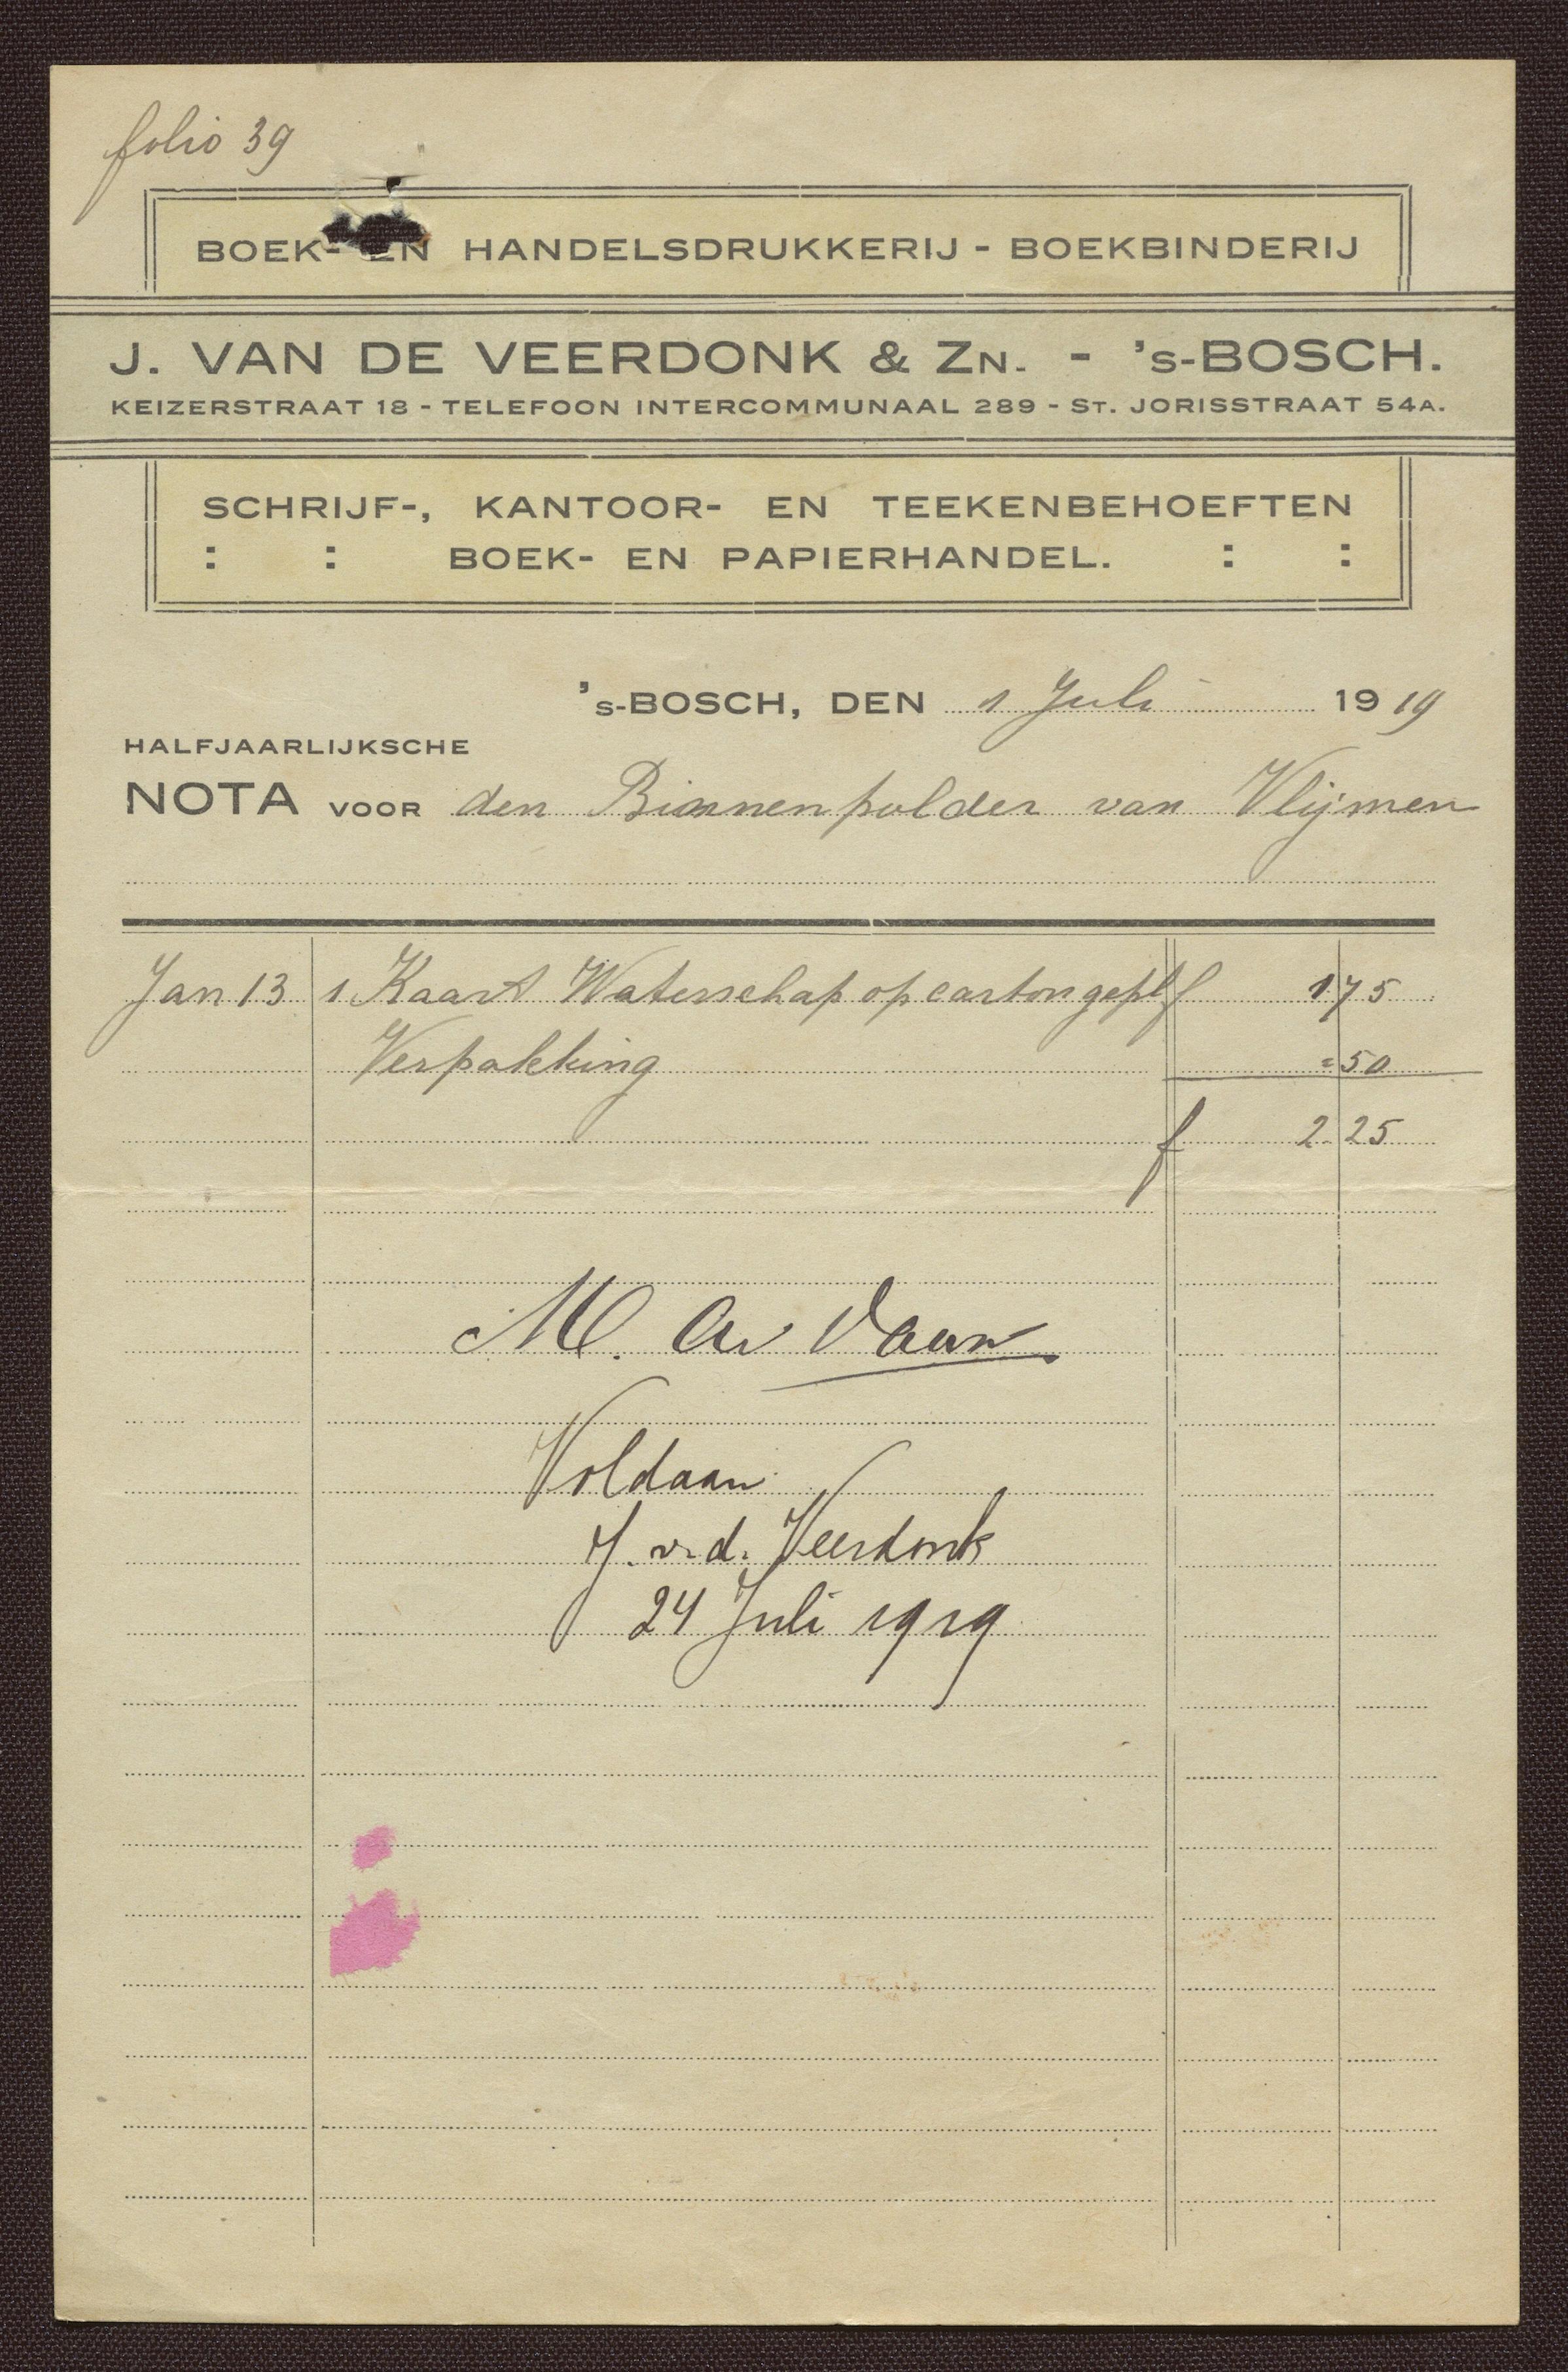 folio 39
BOEK- EN HANDELSDRUKKERIJ - BOEKBINDERIJ
J. VAN DE VEERDONK & ZN. - 's-BOSCH.
KEIZERSTRAAT 18 - TELEFOON INTERCOMMUNAAL 289 - ST. JORISSTRAAT 54A.
SCHRIJF-, KANTOOR- EN TEEKENBEHOEFTEN
: : BOEK- EN PAPIERHANDEL. : :
's-BOSCH, DEN 1 Juli 1919
HALFJAARLIJKSCHE
NOTA VOOR den Binnenpolder van Vlijmen
Jan 13 1 Kaart Waterschap op carton gepl f 1 75
Verpakking = 50
f 2 25
M.
Voldaan
J. v. d. Veerdonk
24 Juli 1919